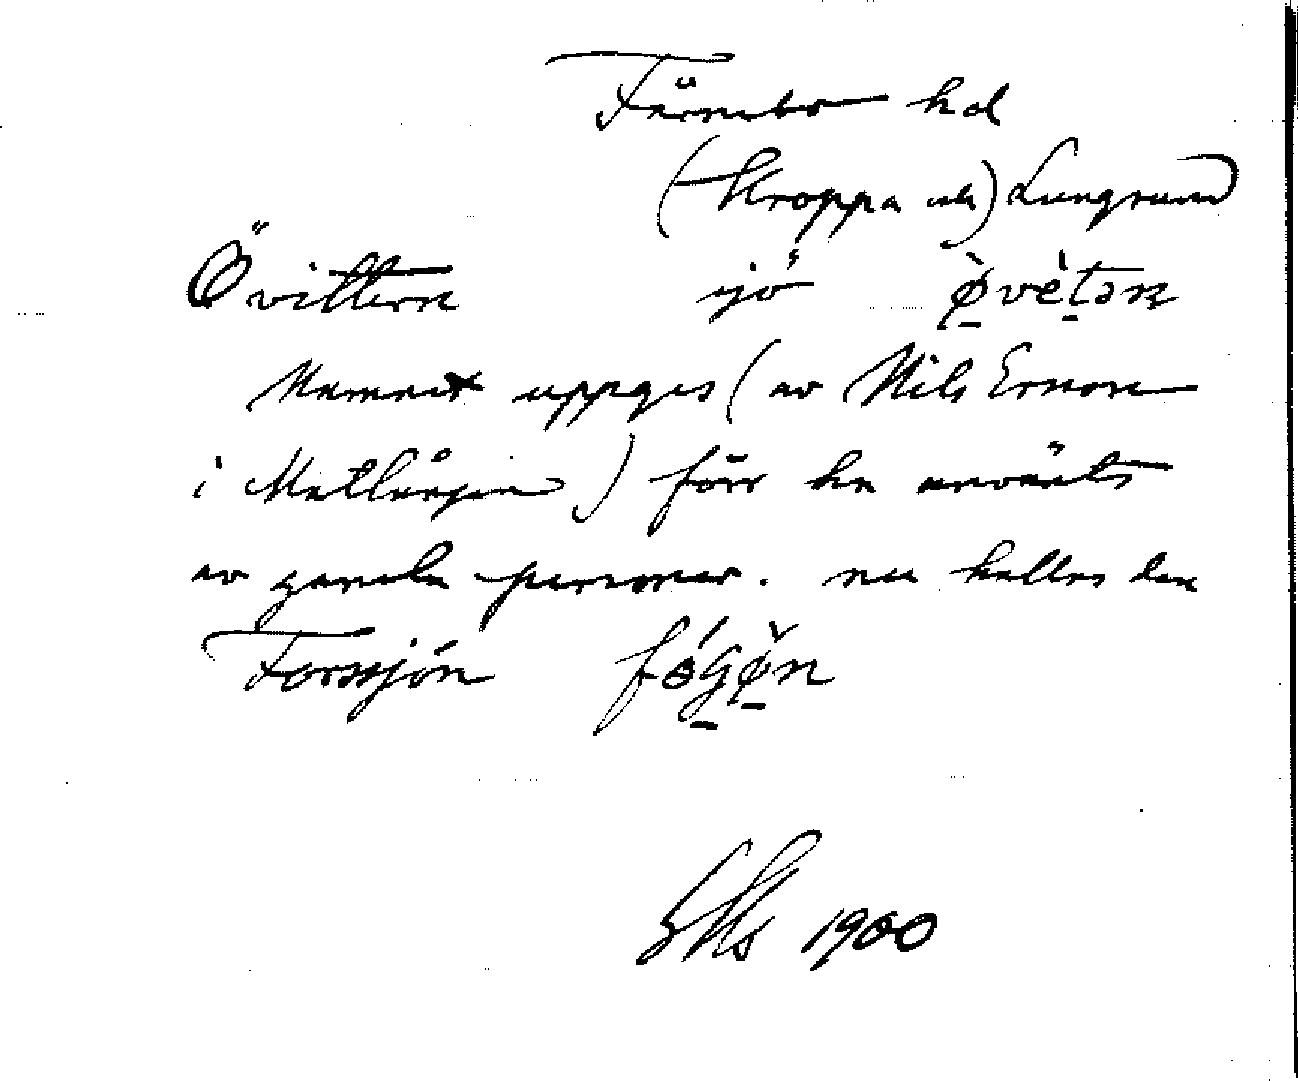 Färnebo hd
(Kroppa utk) Lungsund
Övittern sjö
Namnet uppges (av Nils Ersson
i Matlången) förr ha använts
av gamla personer. nu kallas den
Forssjön
1900